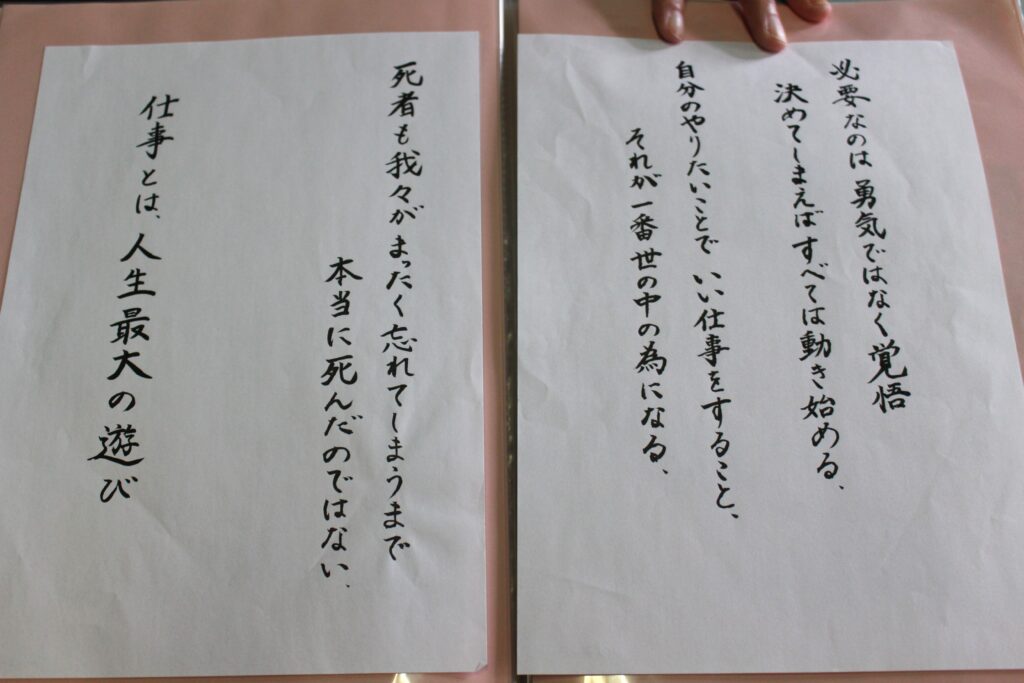 必要なのは勇気ではなく覚悟
決めてしまえばすべては動き始める、
自分のやりたいことでいい仕事をすること、
それが一番世の中の為になる、
死者も我々がまったく忘れてしまうまで
本当に死んだのではない、
仕事とは、人生最大の遊び